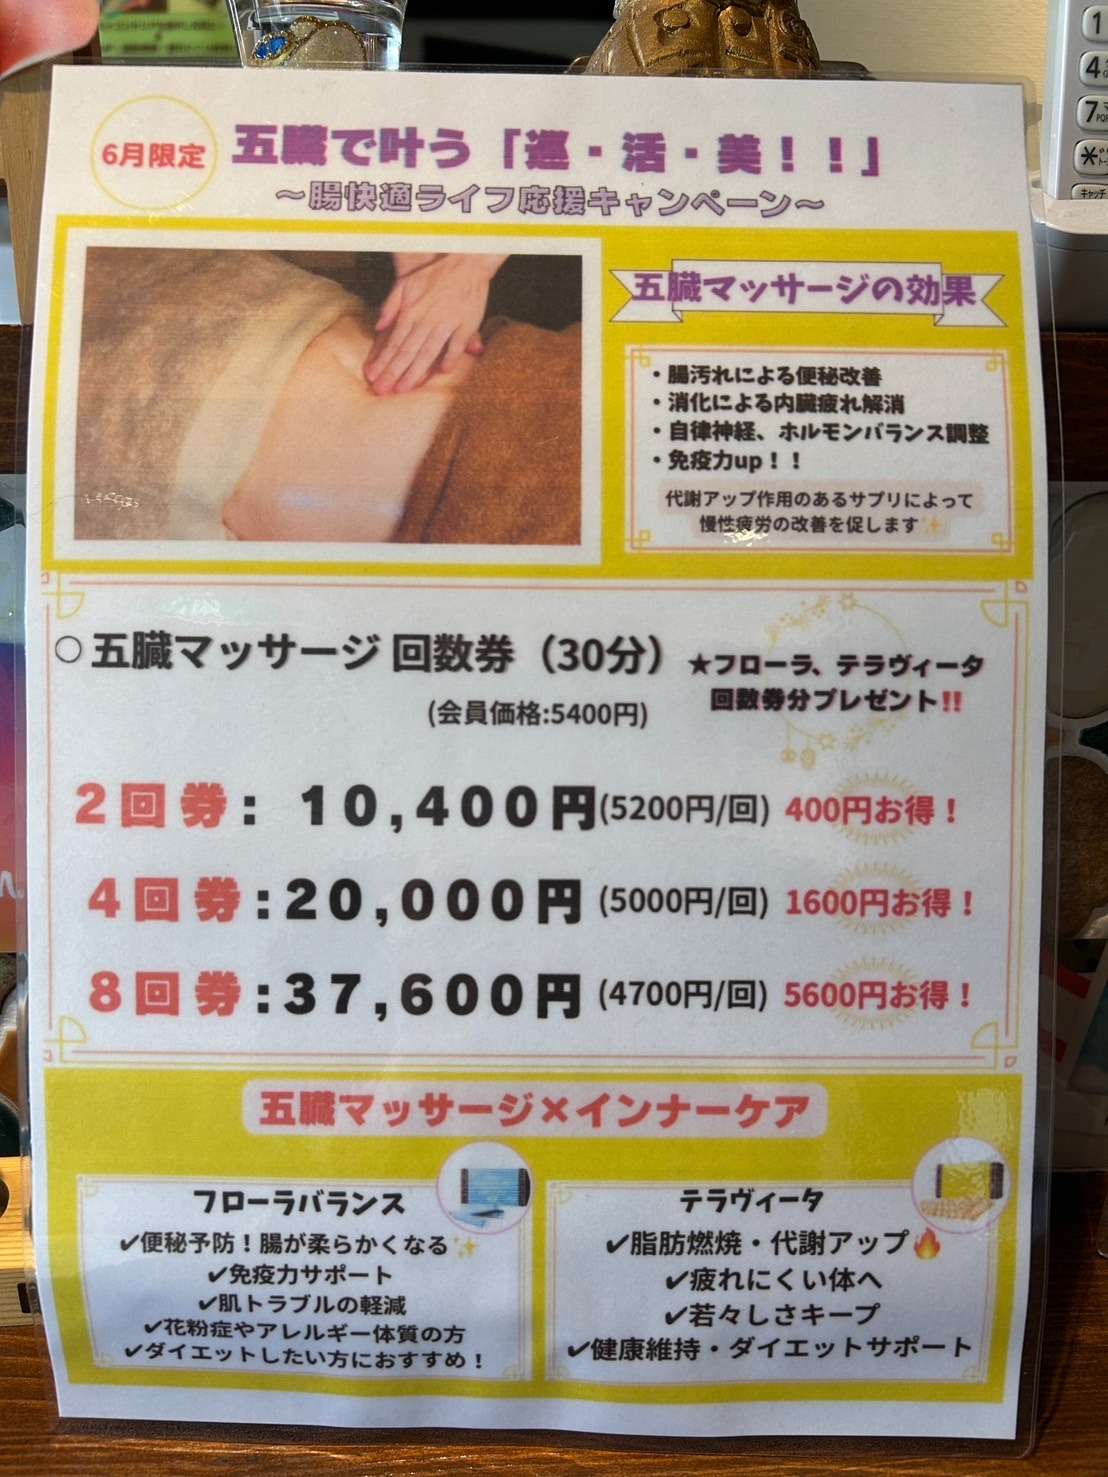 6月限定
五臓で叶う「巡・活・美！！」
～腸快適ライフ応援キャンペーン～
五臓マッサージの効果
・腸汚れによる便秘改善
・消化による内臓疲れ解消
・自律神経、ホルモンバランス調整
・免疫力up！！
代謝アップ作用のあるサプリによって
慢性疲労の改善を促します✨
○ 五臓マッサージ 回数券（30分）
(会員価格:5400円)
★フローラ、テラヴィータ
回数券分プレゼント‼
2回券: 10,400円(5200円/回) 400円お得！
4回券:20,000円 (5000円/回) 1600円お得！
8回券:37,600円 (4700円/回) 5600円お得！
五臓マッサージ×インナーケア
フローラバランス
✔便秘予防！腸が柔らかくなる✨
✔免疫力サポート
✔肌トラブルの軽減
✔花粉症やアレルギー体質の方
✔ダイエットしたい方におすすめ！
テラヴィータ
✔脂肪燃焼・代謝アップ🔥
✔疲れにくい体へ
✔若々しさキープ
✔健康維持・ダイエットサポート
1
4
7
キャッチ